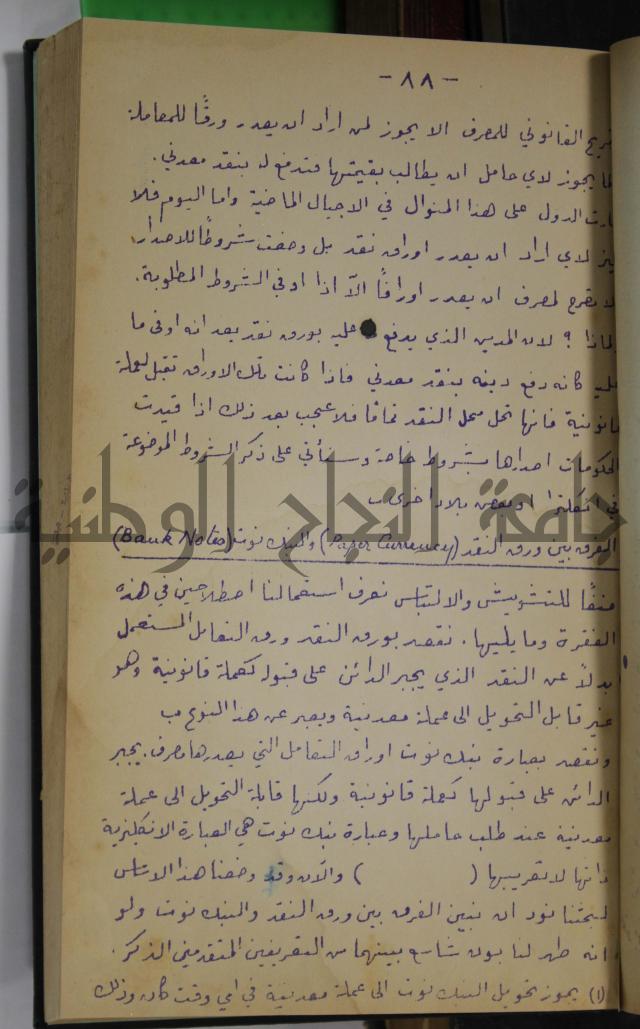 - ٨٨ -
القانوني للمصرف الا يجوز لمن اراد ان يصدر ورقًا للمعاملة
يجوز لاي حامل ان يطالب بقيمتها فتدفع له بنقد معدني .
الدول على هذا المنوال في الاجيال الماضية واما اليوم فلا
لاي اراد ان يصدر اوراق نقد بل وضعت شروطًا للاصدار
لمصرف ان يصدر اوراقًا الّا اذا اوفى الشروط المطلوبة .
لماذا ؟ لان المدين الذي يدفع عليه بورق نقد يعد انه اوفى ما
عليه كانه دفع دينه بنقد معدني فاذا كانت تلك الاوراق تقبل لعملة
قانونية فانها تحل محل النقد تمامًا فلا عجب بعد ذلك اذا قيدت
الحكومات اصدارها بشروط خاصة وسنأتي على ذكر الشروط الموضوعة
في انكلترا او بعض بلاد اخرى
الفرق بين ورق النقد (Paper Currency) والبنك نوت (Bank Notes)
منعًا للتشويش والالتباس نعرف استعمالنا اصطلاحين في هذه
الفقرة وما يليها . نقصد بورق النقد ورق التعامل المستعمل
بدلاً عن النقد الذي يجبر الدائن على قبوله كعملة قانونية وهو
غير قابل التحويل الى عملة معدنية ويعبر عن هذا النوع ب
ونقصد بعبارة بنك نوت اوراق التعامل التي يصدرها مصرف . يجبر
الدائن على قبولها كعملة قانونية ولكنها قابلة التحويل الى عملة
معدنية عند طلب حاملها وعبارة بنك نوت هي العبارة الانكليزية
ذاتها لا تعريبها ( ) والآن وقد وضعنا هذا الاساس
لبحثنا نود ان نبين الفرق بين ورق النقد والبنك نوت ولو
انه ظهر لنا بون شاسع بينهما من التعريفين المتقدمي الذكر .
(١) يجوز تحويل البنك نوت الى عملة معدنية في اي وقت كان وذلك
جامعة النجاح الوطنية